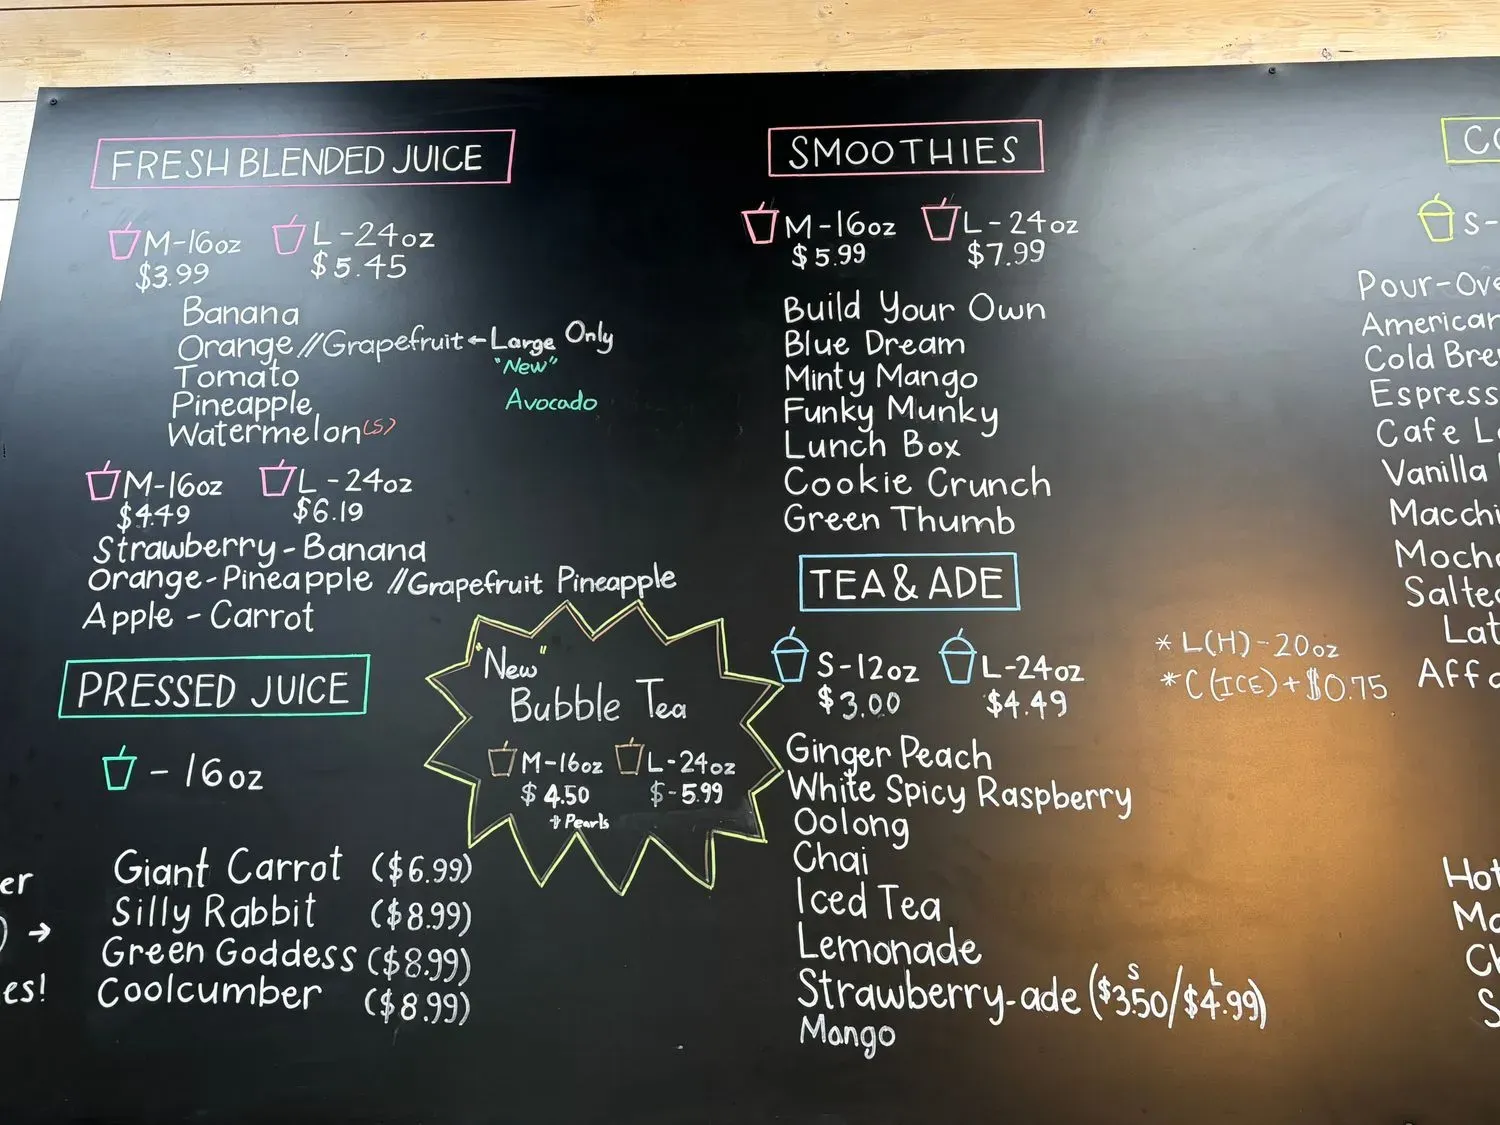 FRESH BLENDED JUICE
M-16oz L-24oz
$3.99 $5.45
Banana
Orange //Grapefruit ← Large Only
Tomato "New"
Pineapple Avocado
Watermelon (S)
M-16oz L-24oz
$4.49 $6.19
Strawberry-Banana
Orange-Pineapple //Grapefruit Pineapple
Apple-Carrot
PRESSED JUICE
-16oz
Giant Carrot ($6.99)
Silly Rabbit ($8.99)
Green Goddess ($8.99)
Coolcumber ($8.99)
er
) →
es!
"New"
Bubble Tea
M-16oz L-24oz
$4.50 $-5.99
+ Pearls
SMOOTHIES
M-16oz L-24oz
$5.99 $7.99
Build Your Own
Blue Dream
Minty Mango
Funky Munky
Lunch Box
Cookie Crunch
Green Thumb
TEA & ADE
S-12oz L-24oz
$3.00 $4.49
* L(H)-20oz
* C(ICE)+$0.75
Ginger Peach
White Spicy Raspberry
Oolong
Chai
Iced Tea
Lemonade
S L
Strawberry-ade ($3.50/$4.99)
Mango
CO
S-
Pour-Ove
American
Cold Bre
Espress
Cafe L
Vanilla
Macchi
Moch
Salte
Lat
Affo
Hot
Mo
Ch
S